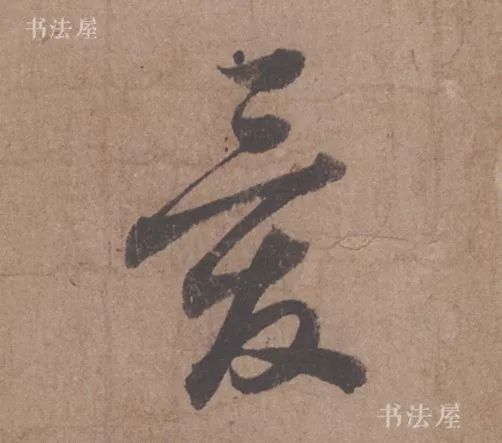 书法屋
爱
书法屋